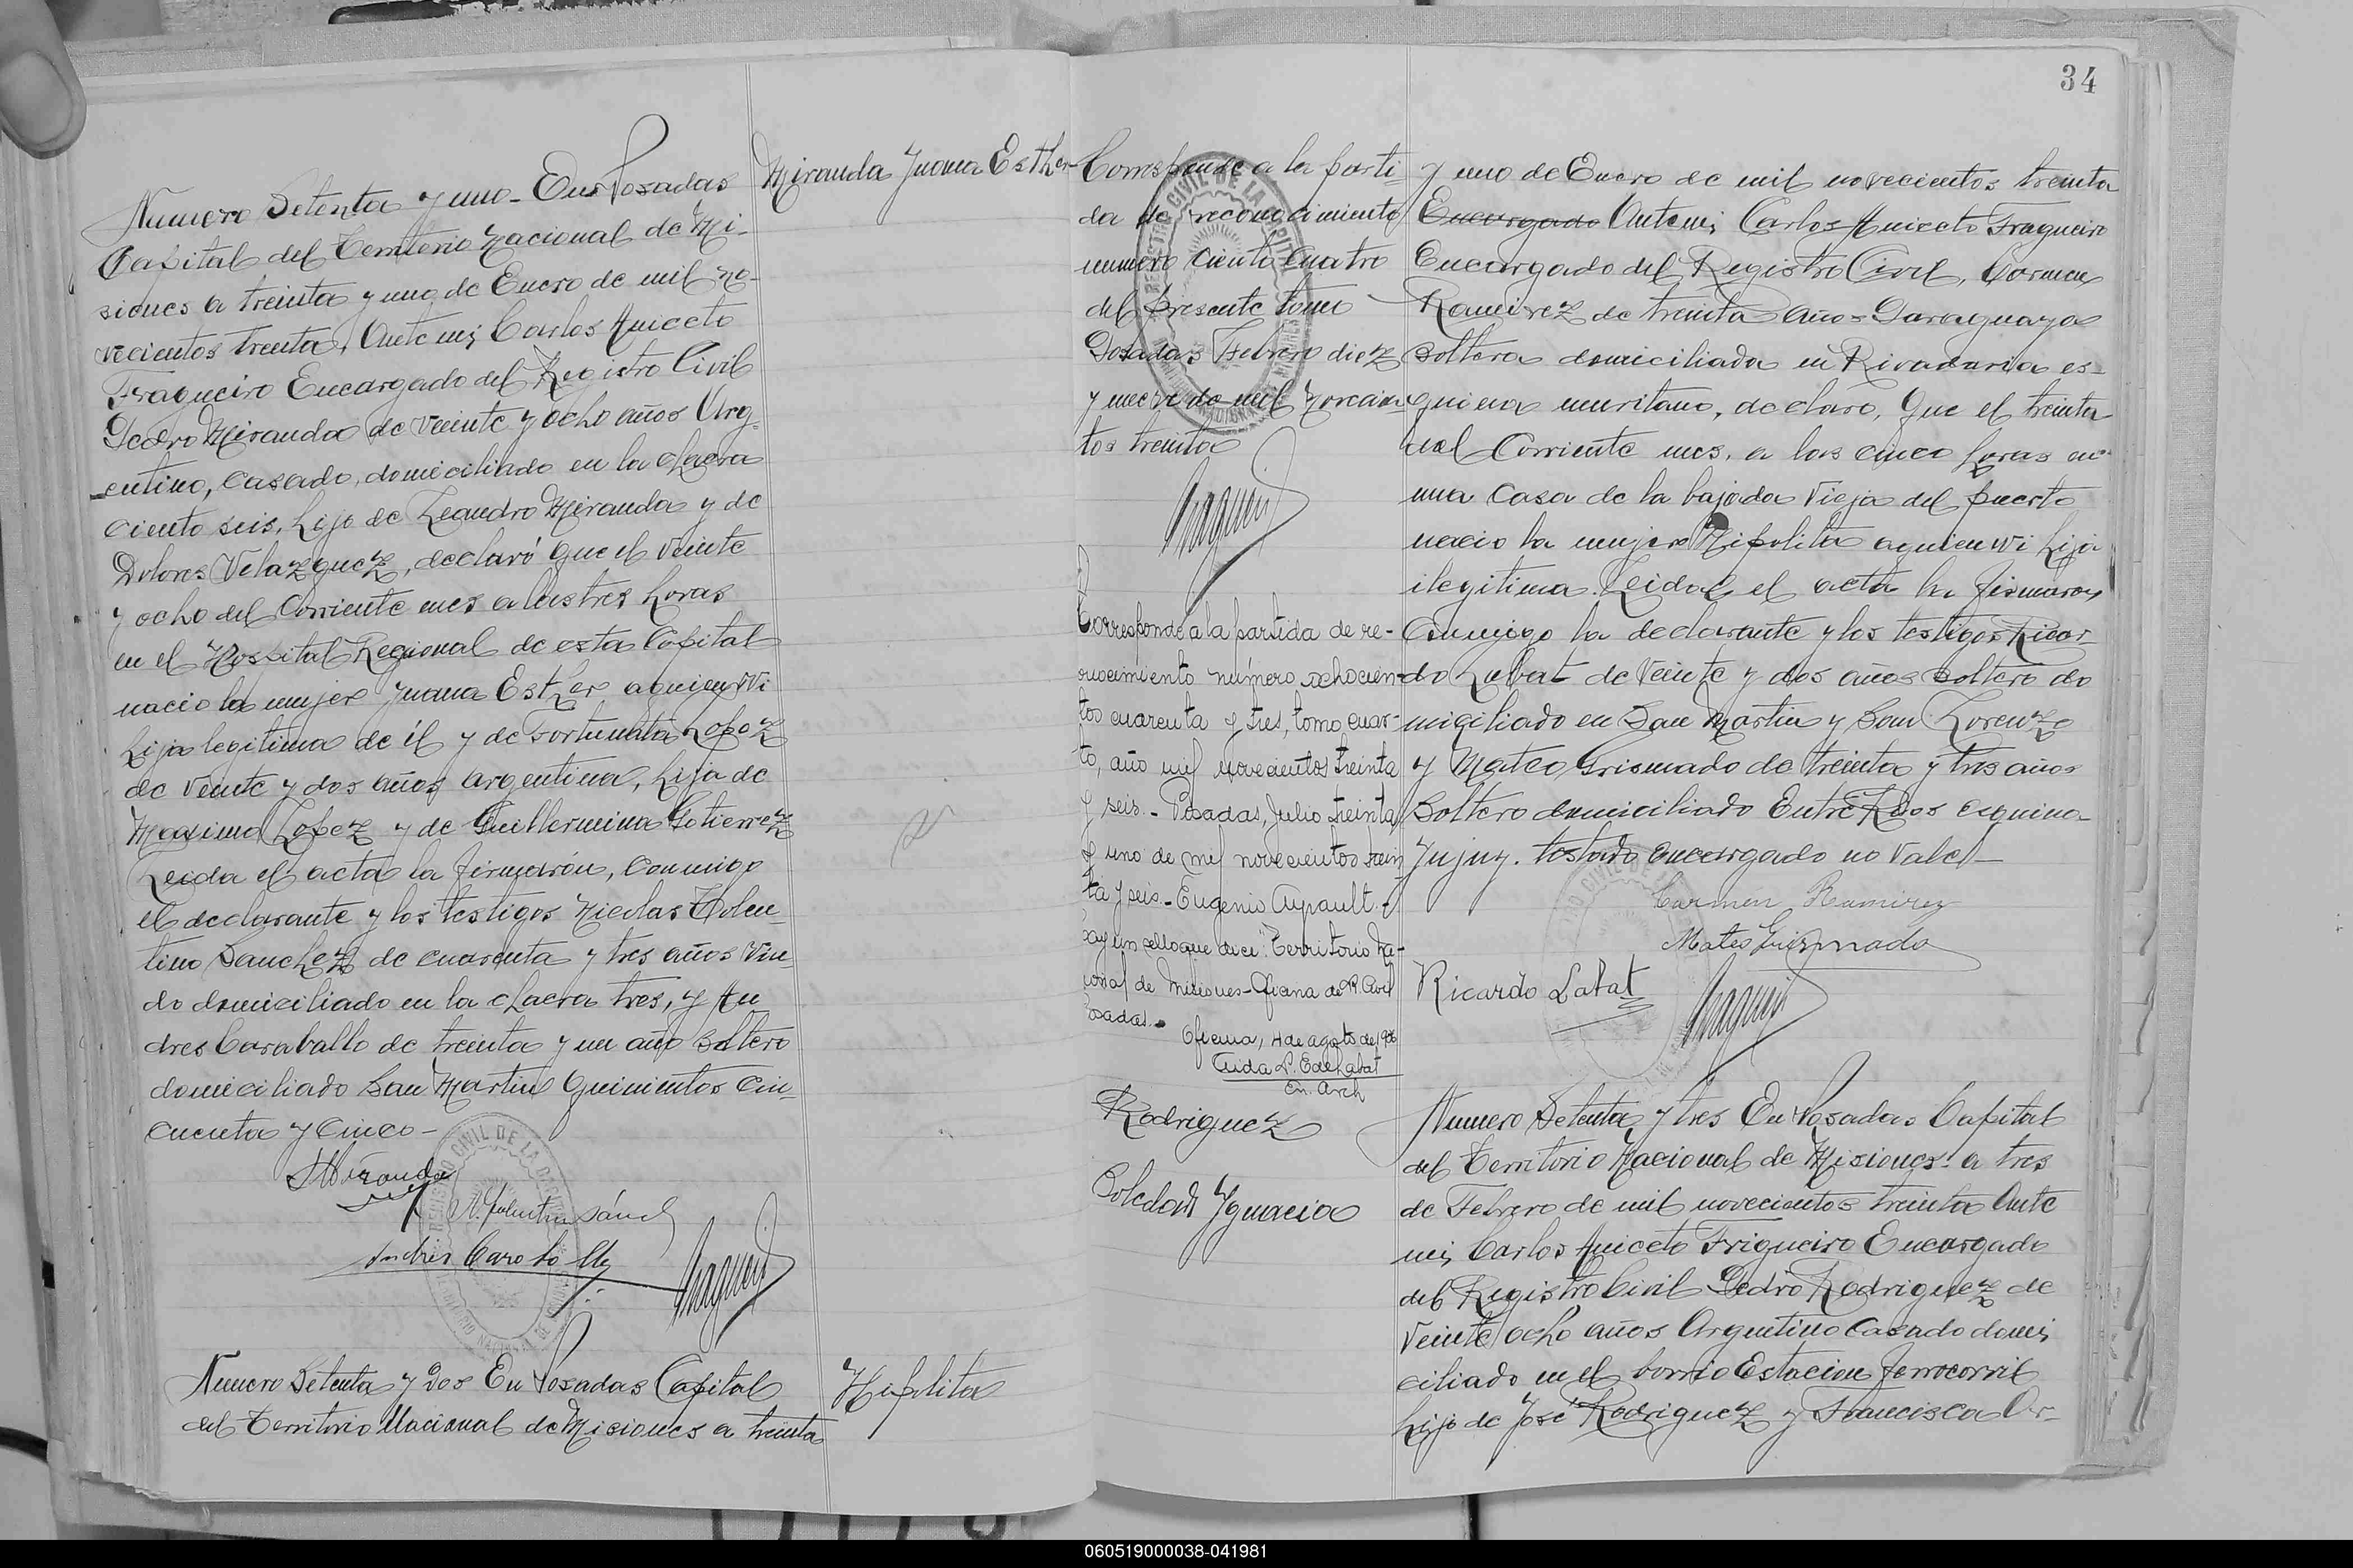 Numero Setenta y uno- En Posadas
Capital del Territorio Nacional de Mi-
siones a treinta y uno de Enero de mil no-
vecientos treinta, Ante mi, Carlos Aniceto
Fragueiro Encargado del Registro Civil
Pedro Miranda de veinte y ocho años Arg-
entino, casado, domiciliado en la chacra
ciento seis, hijo de Leandro Miranda y de
Dolores Velazquez, declaró que el veinte
y ocho del Corriente mes a las tres horas
en el Hospital Regional de esta Capital
nacio la mujer Juana Esther a quien vi
hija legitima de él y de Fortunata Lopez
de veinte y dos años argentina, hija de
Maximo Lopez y de Guillermina Gotierrez
Leida el acta la firmarón, conmigo
el declarante y los testigos Nicolas Tolen-
tino Sanchez de cuarenta y tres años Viu-
do domiciliado en la chacra tres, y An
dres Caraballo de treinta y un año soltero
domiciliado San Martin Quinientos Cin-
cuenta y Cinco-
Miranda Juana Esther
Numero Setenta y Dos En Posadas Capital
del Territorio Nacional de Misiones a treinta
Hipolita
34
Corresponde a la parti-
da de reconocimiento
numero ciento cuatro
del presente tomo
Posadas Febrero diez
y nueve de mil novecien-
tos treinta
Corresponde a la partida de re-
conocimiento número ochocien-
tos cuarenta y tres, tomo cuar-
to, año mil novecientos treinta
y seis.- Posadas, Julio treinta
y uno de mil novecientos trein
ta y seis.- Eugenio Aypault.-
Hay un sello que dice: "Territorio Na-
cional de Misiones-Oficina de R. Civil
Posadas.-
Oficina, 4 de agosto de 1936
En. Arch
Rodriguez
Soledad Ygnacia
y uno de Enero de mil novecientos treinta
Encargado Antemi, Carlos Aniceto Fragueiro
Encargado del Registro Civil, Carmen
Ramirez de treinta años Paraguaya
soltera domiciliada en Rivadavia es-
quina, declaro, Que el treinta
del Corriente mes, a las cinco horas en
una Casa de la bajada vieja del puerto
nacio la mujer Hipolita a quien vi hija
ilegitima. Leida el acta la firmaron
Conmigo la declarante y los testigos Ricar
do Labat de veinte y dos años soltero do
miciliado en San Martin y San Lorenzo
y Mateo Grismado de treinta y tres años
soltero domiciliado Entre Rios esquina
Jujuy. testado encargado no vale-
Carmen Ramirez
Mateo Grismado
Ricardo Labat
Numero Setenta y tres En Posadas Capital
del Territorio Nacional de Misiones- a tres
de Febrero de mil novecientos treinta Ante
mi, Carlos Aniceto Frigueiro Encargado
del Registro Civil Pedro Rodriguez de
veinte ocho años Argentino Casado domi
ciliado en el barrio Estacion ferrocarril
hijo de José Rodriguez y Francisca Or-
060519000038-041981